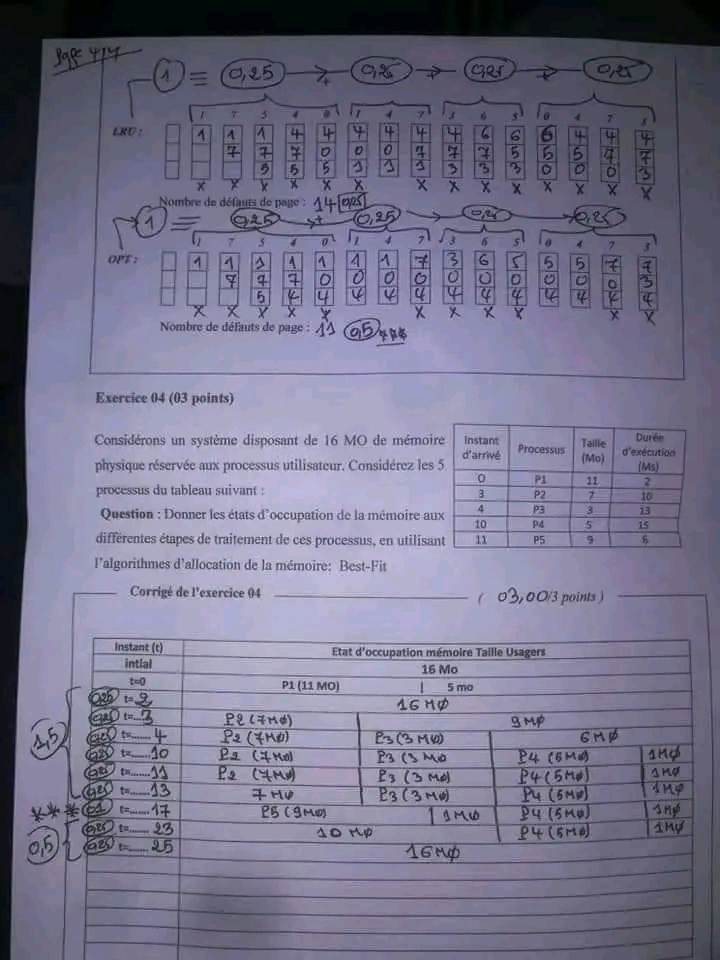 Page 4/4
1 ≡ 0,25 + 0,25 + 0,25 + 0,25
1 7 5 4 0 1 4 7 3 6 5 0 4 7 3
LRU :
1 1 1 4 4 4 4 4 4 6 6 6 4 4 4
7 7 7 0 0 0 7 7 7 5 5 5 7 7
5 5 5 1 1 1 3 3 3 0 0 0 3
x x x x x x x x x x x x x x
Nombre de défauts de page : 14 0,25
1 ≡ 0,25 + 0,25 0,25 0,25
1 7 5 4 0 1 4 7 3 6 5 0 4 7 3
OPT :
1 1 1 1 1 1 1 7 3 6 5 5 5 7 7
7 7 7 0 0 0 0 0 0 0 0 0 0 3
5 4 4 4 4 4 4 4 4 4 4 4 4
x x x x x x x x x x x
Nombre de défauts de page : 11 0,5 ***
Exercice 04 (03 points)
Considérons un système disposant de 16 MO de mémoire
physique réservée aux processus utilisateur. Considérez les 5
processus du tableau suivant :
Question : Donner les états d'occupation de la mémoire aux
différentes étapes de traitement de ces processus, en utilisant
l'algorithmes d'allocation de la mémoire: Best-Fit
Instant d'arrivé Processus Taille (Mo) Durée d'exécution (Ms)
0 P1 11 2
3 P2 7 10
4 P3 3 13
10 P4 5 15
11 P5 9 6
Corrigé de l'exercice 04 ( 03,00/3 points )
Instant (t) Etat d'occupation mémoire Taille Usagers
intial 16 Mo
t=0 P1 (11 MO) 5 mo
0,25 t= 2 16 MO
0,25 t= 3 P2 (7MO) 9 MO
0,25 t=...... 4 P2 (7MO) P3 (3 MO) 6 MO
0,25 t=...... 10 P2 (7MO) P3 (3 MO P4 (5MO) 1MO
0,25 t=...... 11 P2 (7MO) P3 (3 MO) P4 (5MO) 1MO
0,25 t=...... 13 7 MO P3 (3 MO) P4 (5MO) 1MO
1,5
*** t=...... 17 P5 (9MO) 1MO P4 (5MO) 1MO
0,25 t=...... 23 10 MO P4 (5MO) 1MO
0,25 t=...... 25 16MO
0,5